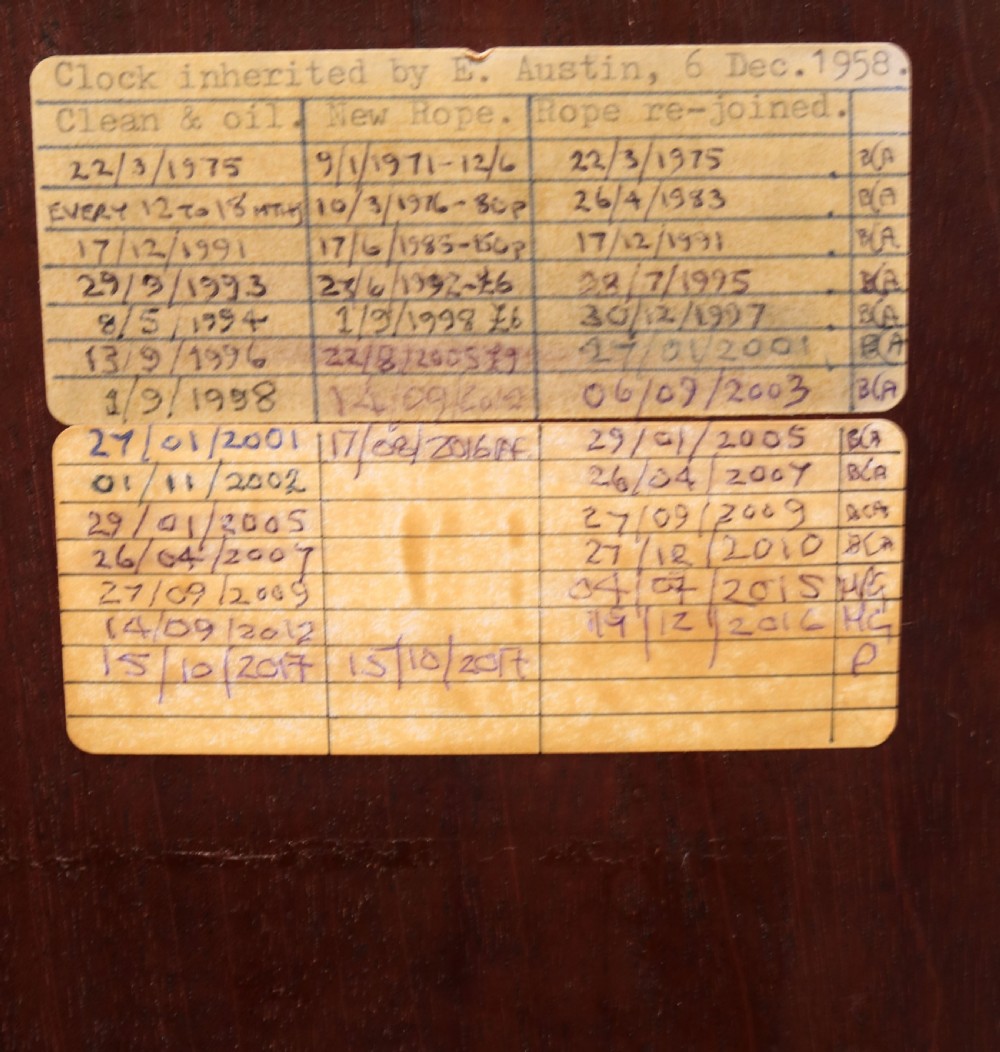 Clock inherited by E. Austin, 6 Dec. 1958.
Clean & oil. New Rope. Rope re-joined.
22/3/1975 9/1/1971-12/6 22/3/1975 BCA
EVERY 12 TO 18 MTHS 10/3/1976-80p 26/4/1983 BCA
17/12/1991 17/6/1985- 17/12/1991 BCA
29/9/1993 -£6 /7/1995 BCA
8/5/1994 1/9/1998 £6 30/12/1997 BCA
13/9/1996 22/8/2005 £9 27/01/2001 BCA
1/9/1998 14/09/2012 06/09/2003 BCA
27/01/2001 17/08/2016 29/01/2005 BCA
01/11/2002 26/04/2007 BCA
29/01/2005 27/09/2009 BCA
26/04/2007 27/12/2010 BCA
27/09/2009 04/07/2015 MG
14/09/2012 19/12/2016 MG
15/10/2017 15/10/2017 P